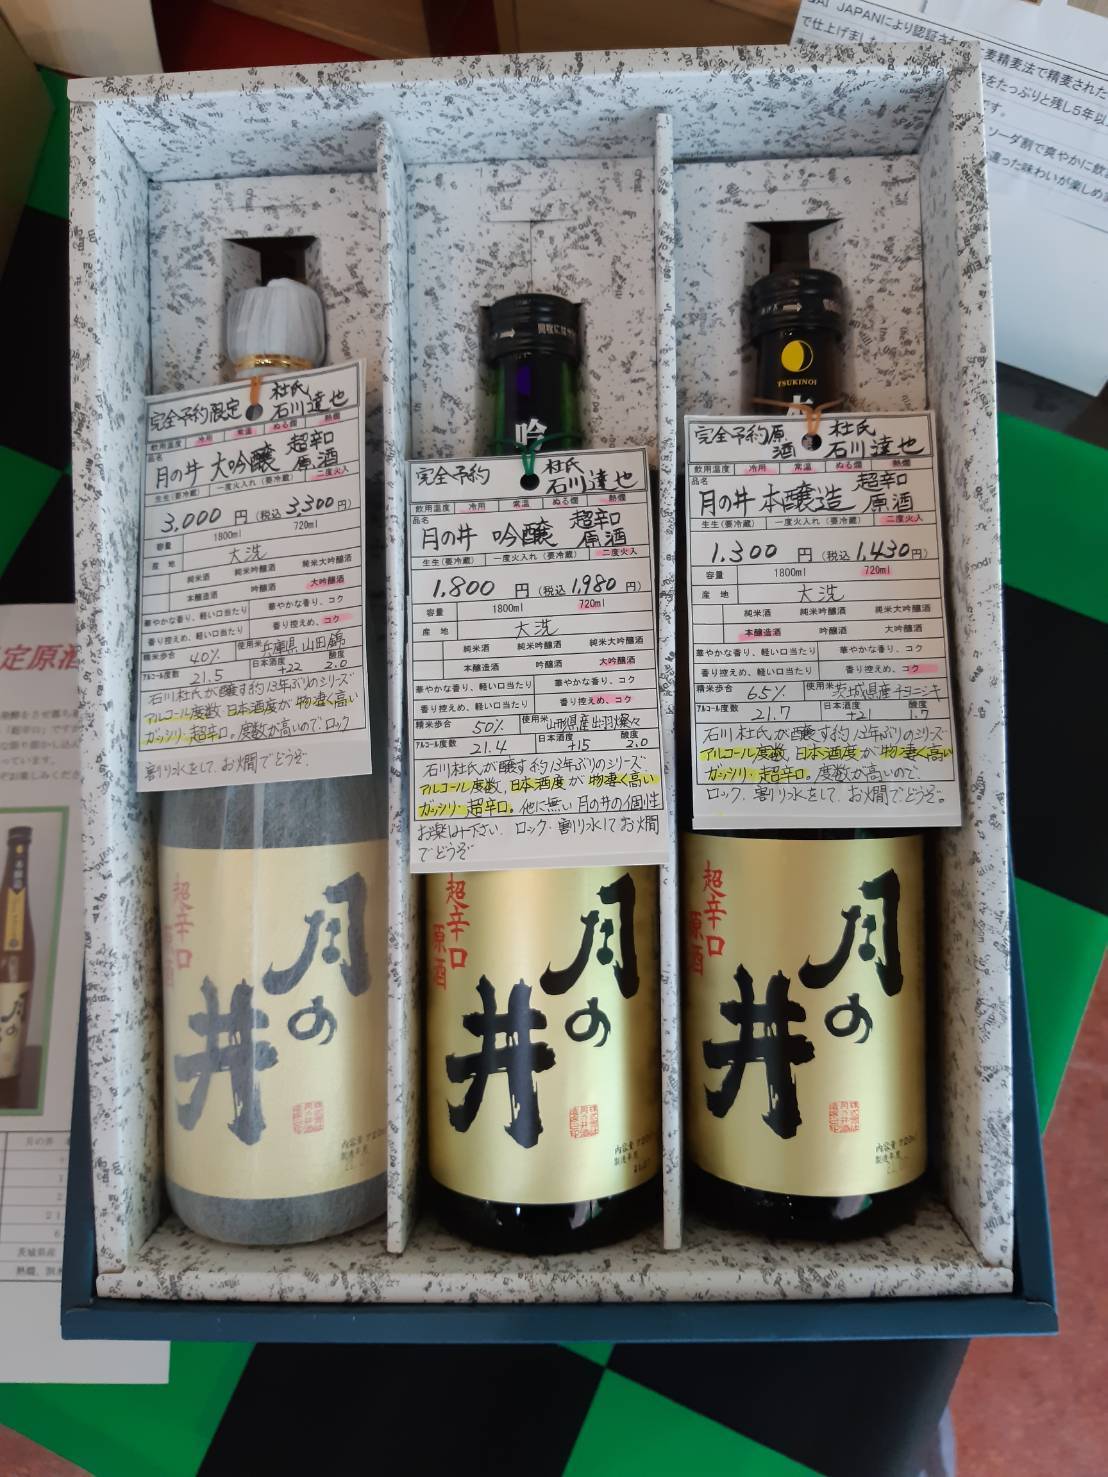 完全予約限定
杜氏
石川達也
飲用温度 冷用 常温 ぬる燗 熱燗
品名
月の井 大吟醸 超辛口
原酒
生生(要冷蔵) 一度火入れ(要冷蔵) 二度火入
3,000 円 (税込 3,300円)
容量 1800ml 720ml
産地 大洗
純米酒 純米吟醸酒 純米大吟醸酒
本醸造酒 吟醸酒 大吟醸酒
華やかな香り、軽い口当たり 華やかな香り、コク
香り控えめ、軽い口当たり 香り控えめ、コク
精米歩合 40% 使用米 兵庫県山田錦
アルコール度数 21.5 日本酒度 +22 酸度 2.0
石川杜氏が醸す約13年ぶりのシリーズ
アルコール度数、日本酒度が物凄く高い
ガッシリ・超辛口。度数が高いので、ロック
割り水をして、お燗でどうぞ。
完全予約
杜氏
石川達也
飲用温度 冷用 常温 ぬる燗 熱燗
品名
月の井 吟醸 超辛口
原酒
生生(要冷蔵) 一度火入れ(要冷蔵) 二度火入
1,800 円 (税込 1,980円)
容量 1800ml 720ml
産地 大洗
純米酒 純米吟醸酒 純米大吟醸酒
本醸造酒 吟醸酒 大吟醸酒
華やかな香り、軽い口当たり 華やかな香り、コク
香り控えめ、軽い口当たり 香り控えめ、コク
精米歩合 50% 使用米 山形県産出羽燦々
アルコール度数 21.4 日本酒度 +15 酸度 2.0
石川杜氏が醸す約13年ぶりのシリーズ
アルコール度数、日本酒度が物凄く高い
ガッシリ・超辛口。他に無い月の井の個性
お楽しみ下さい。ロック・割り水してお燗
でどうぞ
TSUKINOI
完全予約原酒
杜氏
石川達也
飲用温度 冷用 常温 ぬる燗 熱燗
品名
月の井 本醸造 超辛口
原酒
生生(要冷蔵) 一度火入れ(要冷蔵) 二度火入
1,300 円 (税込 1,430円)
容量 1800ml 720ml
産地 大洗
純米酒 純米吟醸酒 純米大吟醸酒
本醸造酒 吟醸酒 大吟醸酒
華やかな香り、軽い口当たり 華やかな香り、コク
香り控えめ、軽い口当たり 香り控えめ、コク
精米歩合 65% 使用米 茨城県産チヨニシキ
アルコール度数 21.7 日本酒度 +21 酸度 1.7
石川杜氏が醸す約13年ぶりのシリーズ
アルコール度数、日本酒度が物凄く高い
ガッシリ・超辛口。度数が高いので、
ロック、割り水をして、お燗でどうぞ。
吟
超辛口
原酒
月の井
内容量 720ml
製造年月
超辛口
原酒
月の井
内容量 720ml
製造年月
超辛口
原酒
月の井
内容量 720ml
製造年月
JAPANにより認証され
麦精麦法で精麦された
で仕上げました
をたっぷりと残し5年以
ソーダ割で爽やかに飲
違った味わいが楽しめ
定原酒
月の井
茨城県産
熱燗、